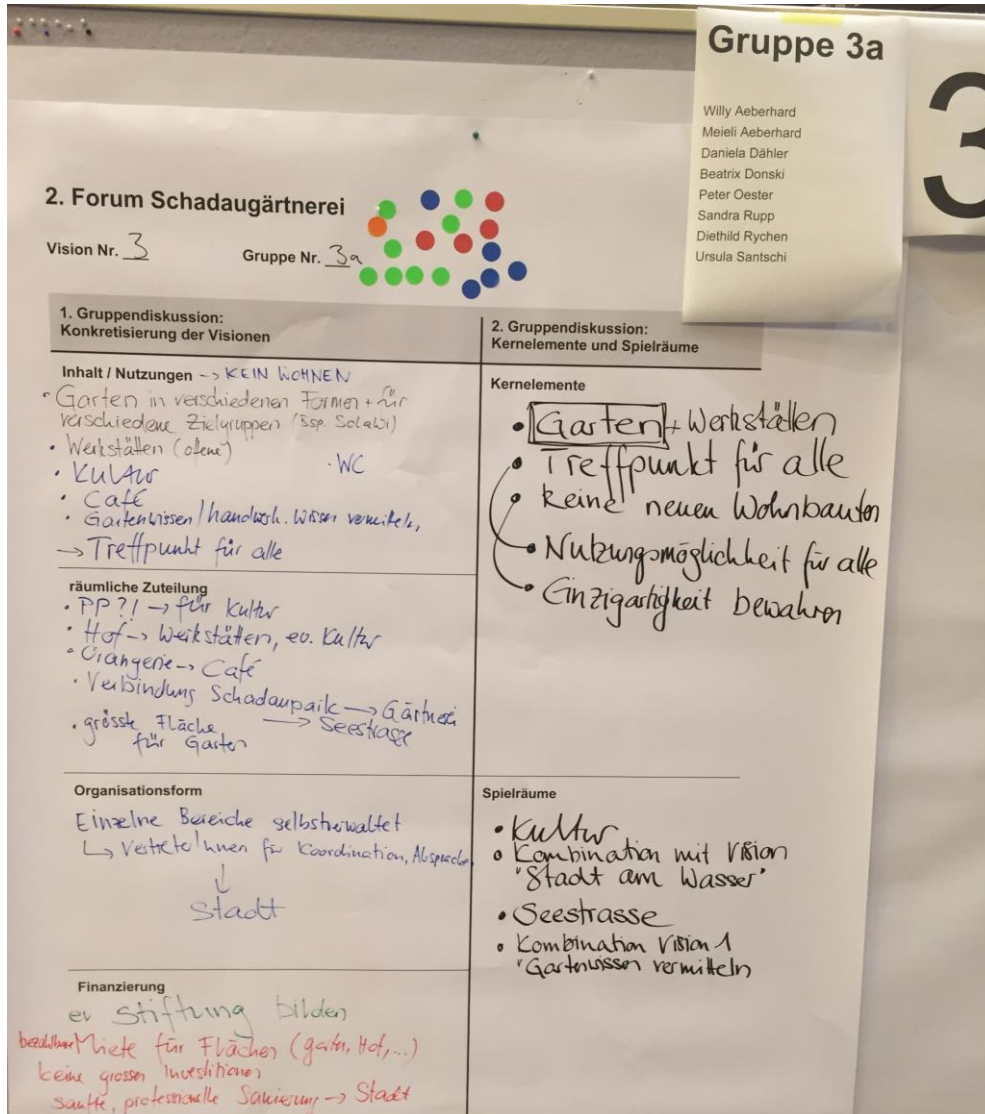 Gruppe 3a
Willy Aeberhard
Meieli Aeberhard
Daniela Dähler
Beatrix Donski
Peter Oester
Sandra Rupp
Diethild Rychen
Ursula Santschi
3
2. Forum Schadaugärtnerei
Vision Nr. 3 Gruppe Nr. 3a
1. Gruppendiskussion:
Konkretisierung der Visionen
Inhalt / Nutzungen -> KEIN WOHNEN
• Garten in verschiedenen Formen + für
verschiedene Zielgruppen (Bsp. Solawi)
• Werkstätten (offene)
• WC
• Kultur
• Café
• Gartenwissen/handwerk. Wissen vermitteln,
-> Treffpunkt für alle
räumliche Zuteilung
• PP?! -> für Kultur
• Hof -> Werkstätten, ev. Kultur
• Orangerie -> Café
• Verbindung Schadaupark -> Gärtnerei
-> Seestrasse
• grösste Fläche
für Garten
Organisationsform
Einzelne Bereiche selbstverwaltet
↳ VertreterInnen für Koordination, Absprache
↓
Stadt
Finanzierung
ev Stiftung bilden
bezahlbare Miete für Flächen (Garten, Hof,...)
keine grossen Investitionen
sanfte, professionelle Sanierung -> Stadt
2. Gruppendiskussion:
Kernelemente und Spielräume
Kernelemente
• Garten + Werkstätten
• Treffpunkt für alle
• keine neuen Wohnbauten
• Nutzungsmöglichkeit für alle
• Einzigartigkeit bewahren
Spielräume
• Kultur
• Kombination mit Vision
"Stadt am Wasser"
• Seestrasse
• Kombination Vision 1
"Gartenwissen vermitteln